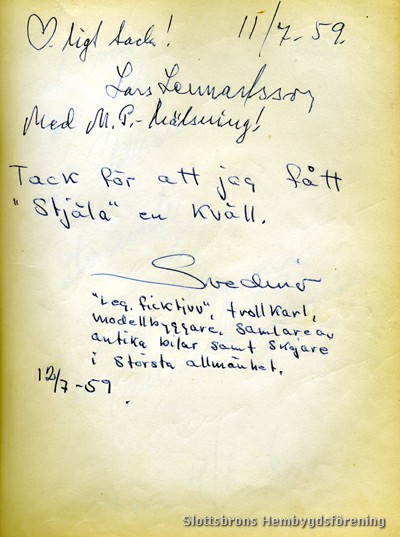 ♡ligt tack! 11/7-59.
Lars Lennartsson
Med M.P.-hälsning!
Tack för att jag fått
"Stjäla" en kväll.
Svedinò
"Leg. ficktjuv", trollkarl,
modellbyggare, samlare av
antika bilar samt skojare
i största allmänhet.
12/7-59
Slottsbrons Hembygdsförening